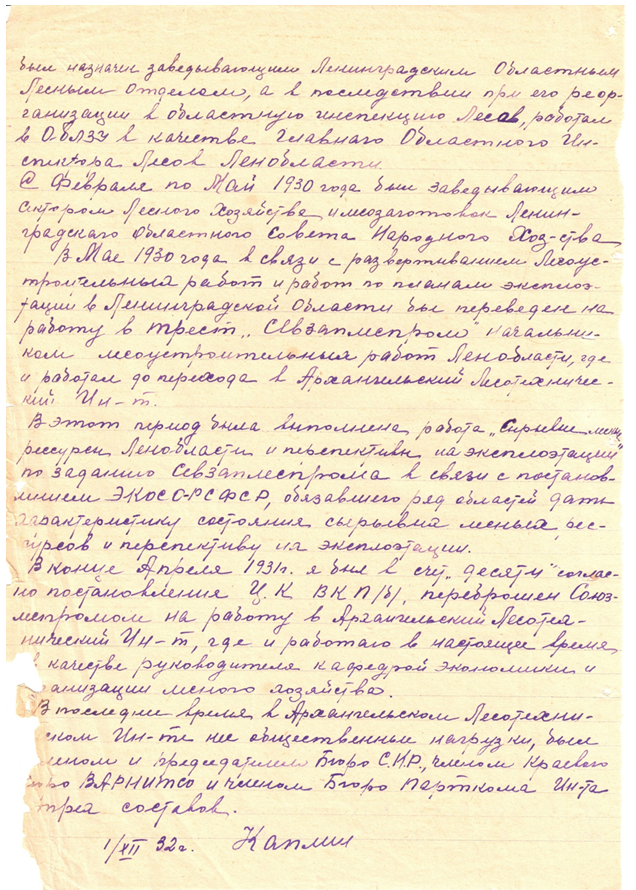 был назначен заведывающим Ленинградским Областным
Лесным отделом, а в последствии при его реор-
ганизации в областную инспекцию Лесов, работал
в ОблЗУ в качестве Главнаго Областного Ин-
спектора Лесов Ленобласти.
С Февраля по Май 1930 года был заведывающим
сектором Лесного Хозяйства и лесозаготовок Ленин-
градскаго Областного Совета Народного Хоз-ства
В Мае 1930 года в связи с развертыванием Лесоус-
троительных работ и работ по планам эксплоа-
тации в Ленинградской Области был переведен на
работу в трест „Севзаплеспром" начальни-
ком лесоустроительных работ Ленобласти, где
и работал до перехода в Архангельский Лесотехничес-
кий Ин-т.
В этот период была выполнена работа „Сырьевые лесн.
рессурсы Ленобласти и перспективы их эксплоатации"
по заданию Севзаплеспрома в связи с постанов-
лением ЭКОСО-РСФСР, обязавшего ряд областей дать
характеристику состояния сырьевых лесных рес-
сурсов и перспективу их эксплоатации.
В конце Апреля 1931г. я был в счет „десяти" соглас-
но постановления Ц.К ВКП/б/, переброшен Союз-
леспромом на работу в Архангельский Лесотех-
нический Ин-т, где и работаю в настоящее время
в качестве руководителя кафедрой экономики и
анизации лесного хозяйства.
В последнее время в Архангельском Лесотехни-
ском Ин-те нес общественные нагрузки, был
леном и председателем Бюро С.Н.Р., членом Краевого
юро ВАРНИТСО и членом Бюро Парткома Ин-та
трех составов.
1/XII 32г. Каплин